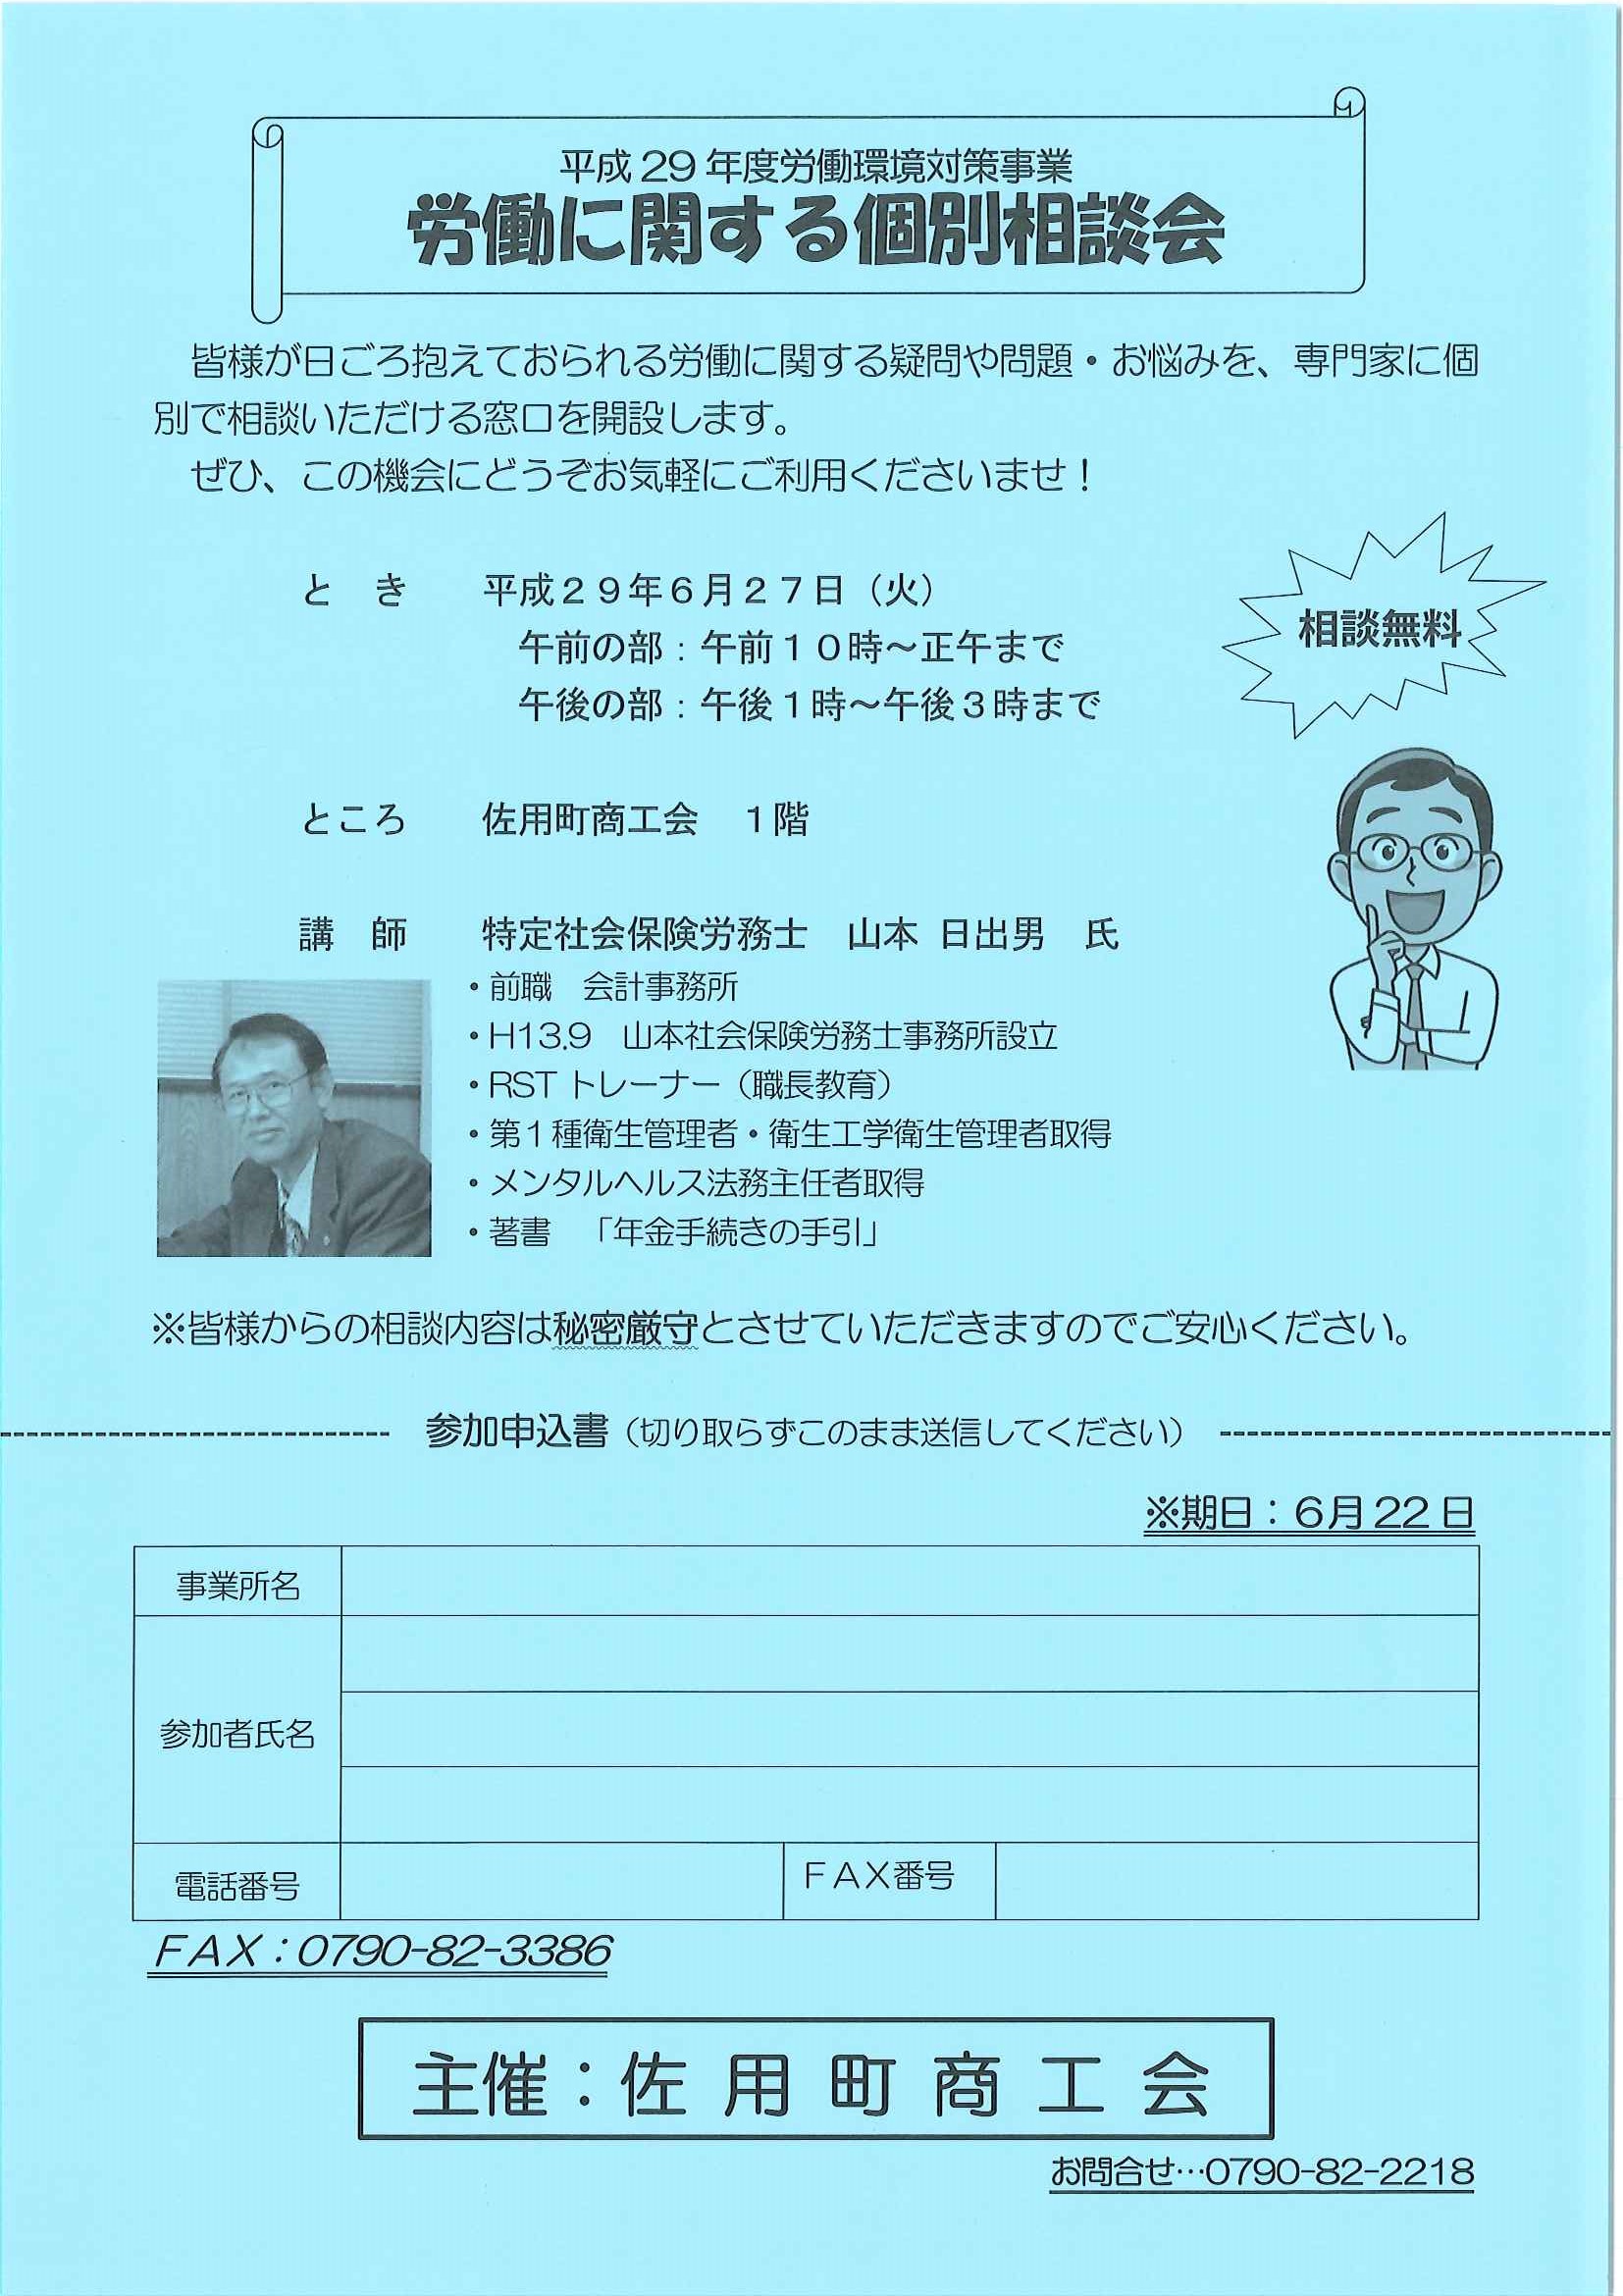 平成 29 年度労働環境対策事業
労働に関する個別相談会
皆様が日ごろ抱えておられる労働に関する疑問や問題・お悩みを、専門家に個
別で相談いただける窓口を開設します。
ぜひ、この機会にどうぞお気軽にご利用くださいませ！
と　き　　平成２９年６月２７日（火）
午前の部：午前１０時～正午まで
午後の部：午後１時～午後３時まで
相談無料
ところ　　佐用町商工会　１階
講　師　　特定社会保険労務士　山本 日出男　氏
・前職　会計事務所
・H13.9　山本社会保険労務士事務所設立
・RST トレーナー（職長教育）
・第１種衛生管理者・衛生工学衛生管理者取得
・メンタルヘルス法務主任者取得
・著書　「年金手続きの手引」
※皆様からの相談内容は秘密厳守とさせていただきますのでご安心ください。
参加申込書（切り取らずこのまま送信してください）
※期日：６月 22 日
事業所名
参加者氏名
電話番号
ＦＡＸ番号
ＦＡＸ：0790-82-3386
主催：佐 用 町 商 工 会
お問合せ…0790-82-2218